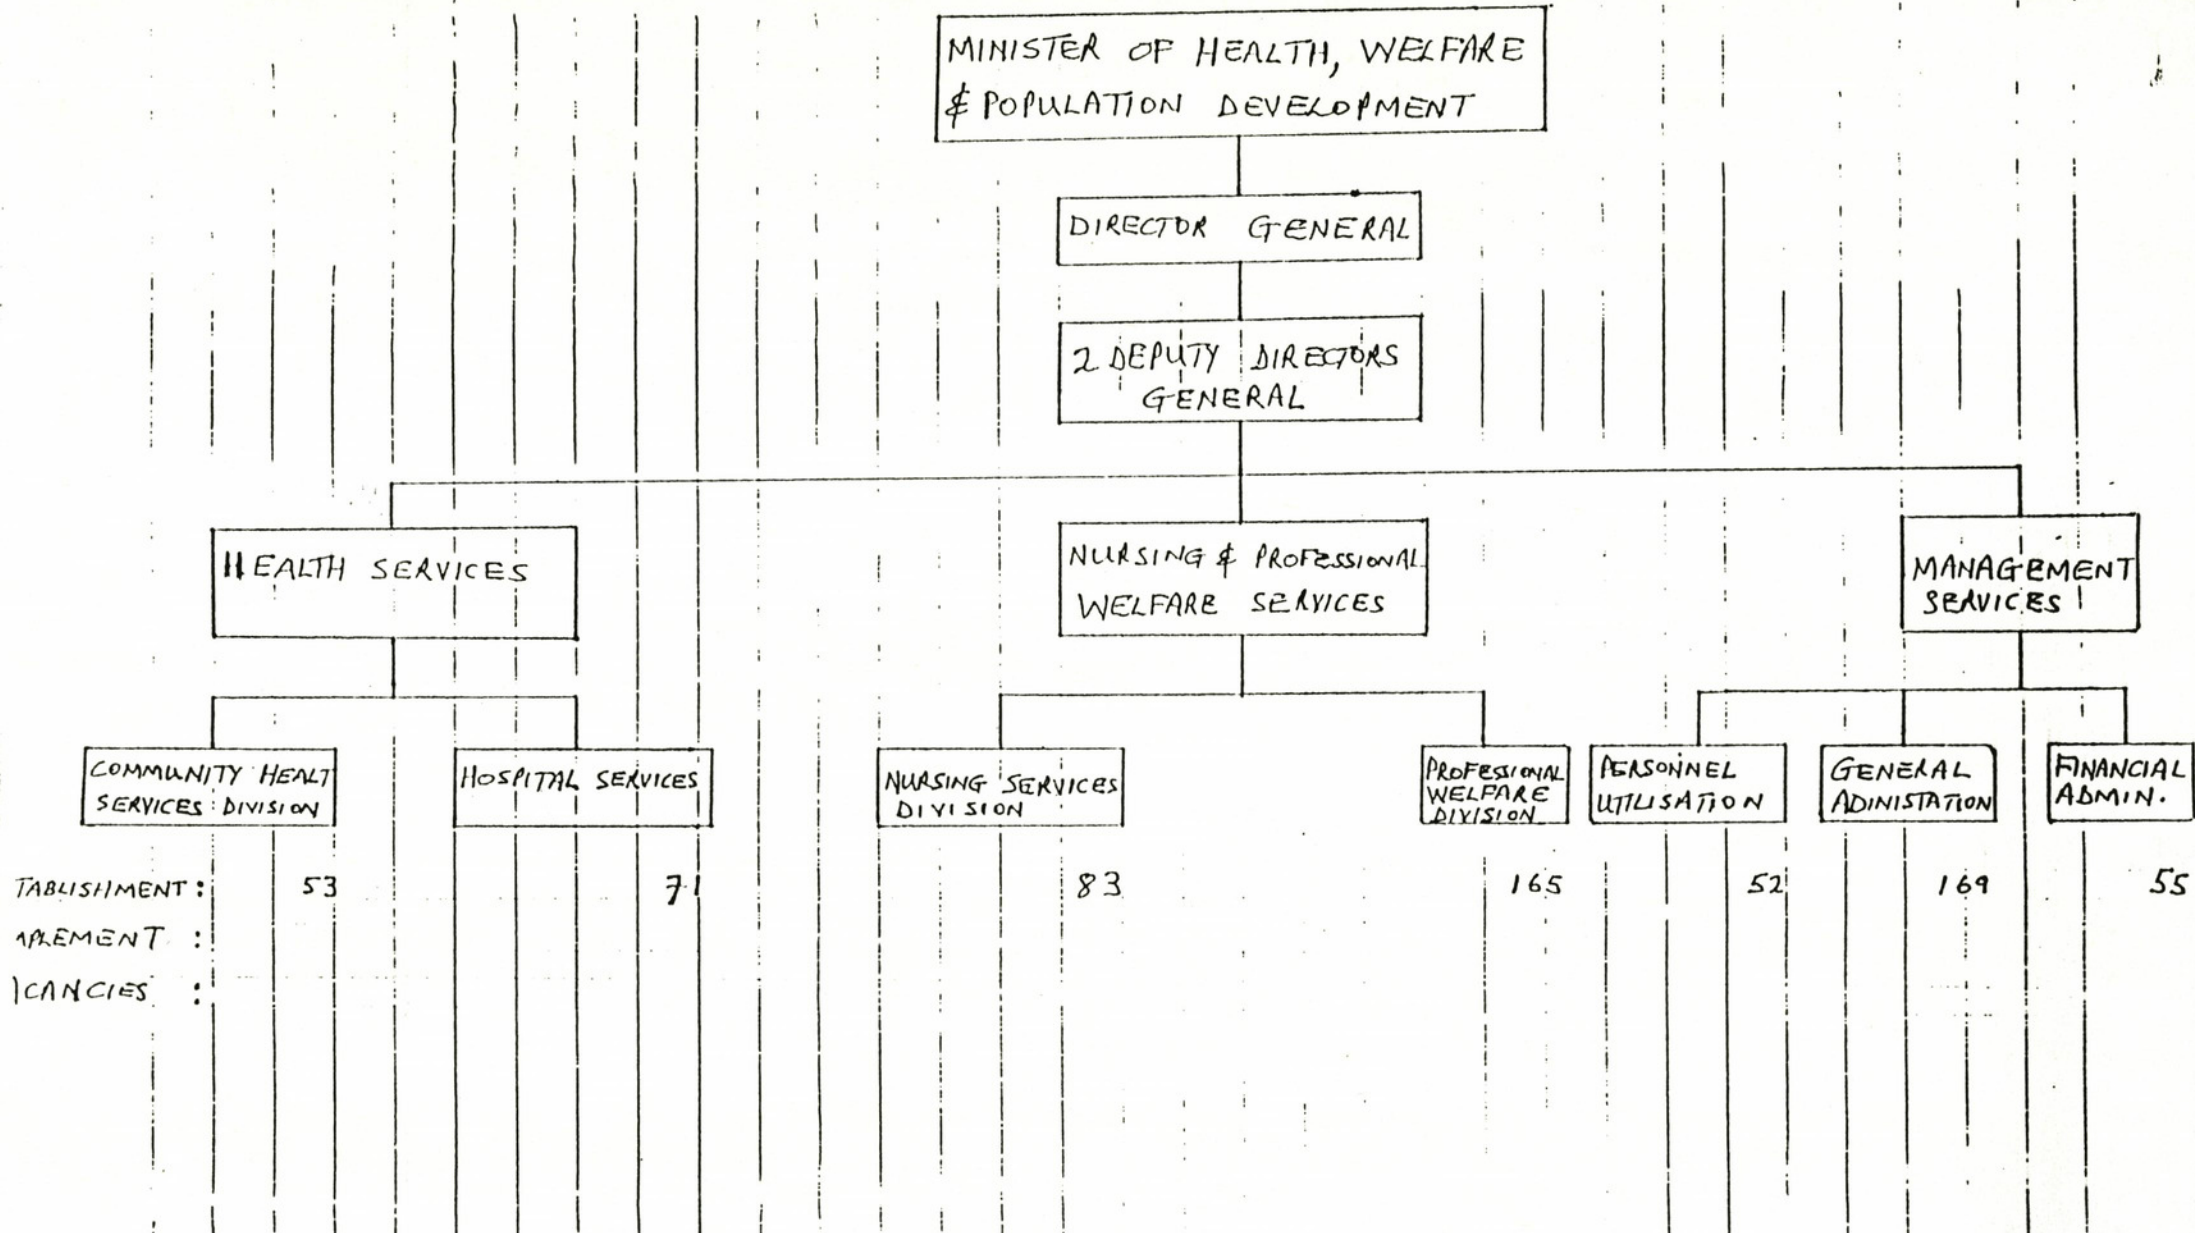 MINISTER OF HEALTH, WELFARE
& POPULATION DEVELOPMENT
DIRECTOR GENERAL
2 DEPUTY DIRECTORS
GENERAL
HEALTH SERVICES
NURSING & PROFESSIONAL
WELFARE SERVICES
MANAGEMENT
SERVICES
COMMUNITY HEALT
SERVICES DIVISION
HOSPITAL SERVICES
NURSING SERVICES
DIVISION
PROFESSIONAL
WELFARE
DIVISION
PERSONNEL
UTILISATION
GENERAL
ADINISTATION
FINANCIAL
ADMIN.
TABLISHMENT: 53 71 83 165 52 169 55
PLEMENT :
CANCIES :